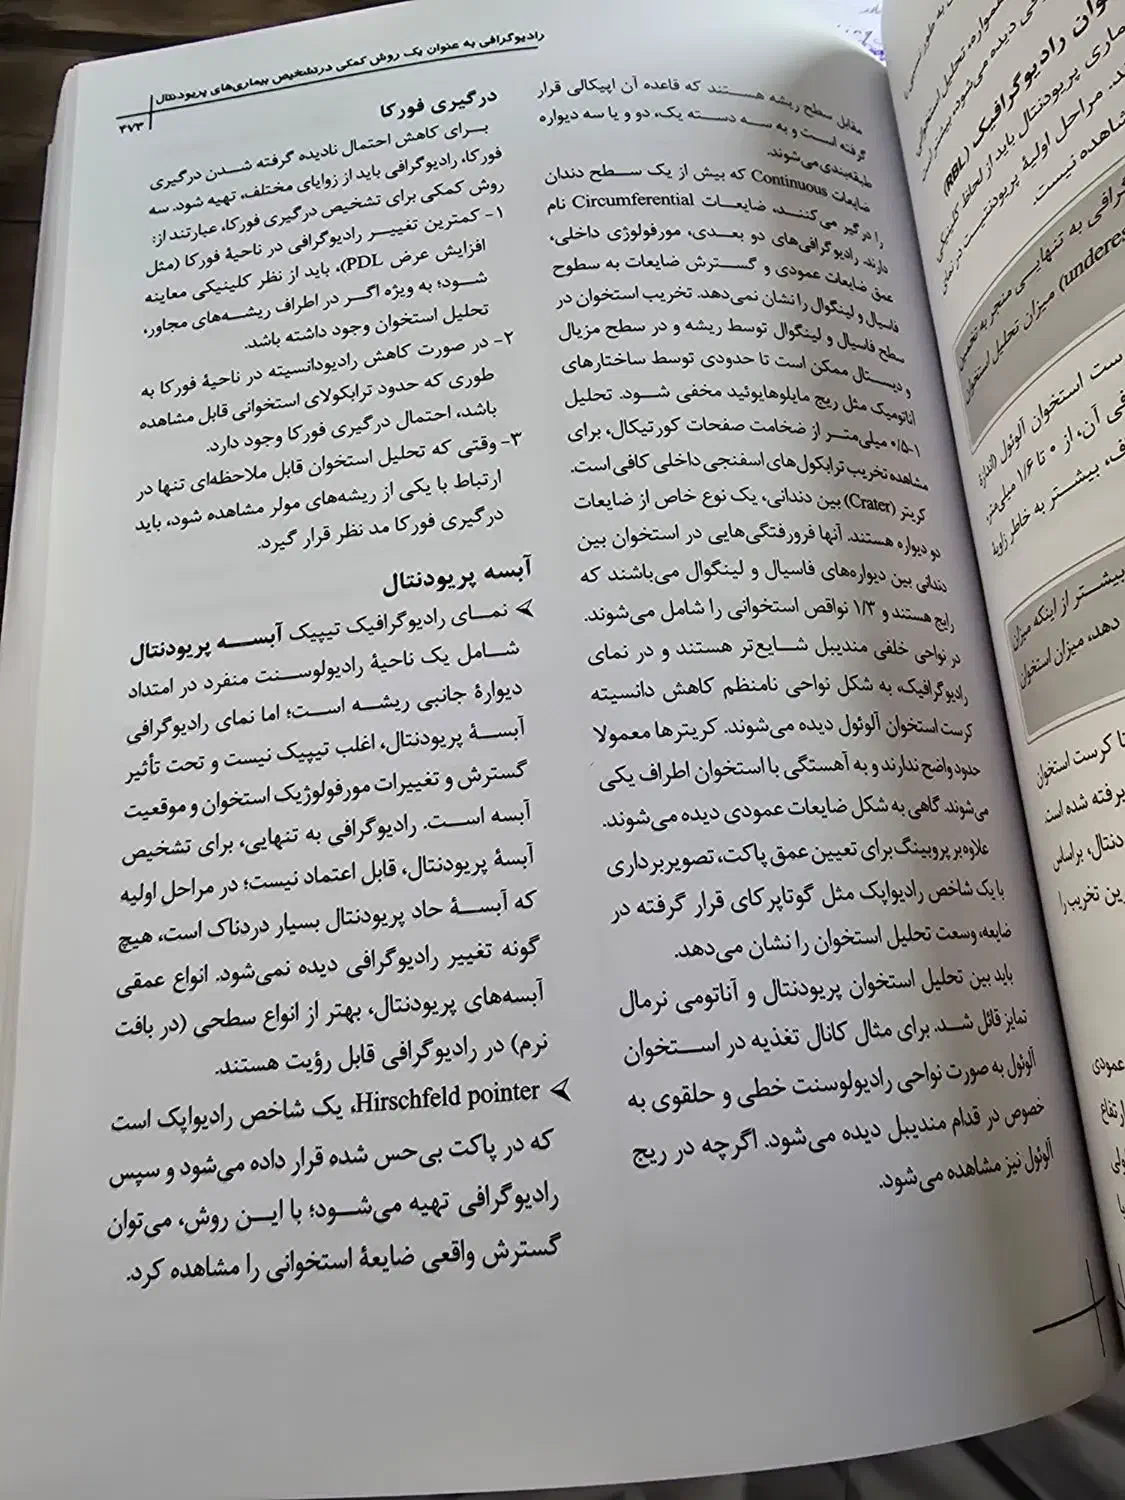 رادیوگرافی به عنوان یک روش کمکی در تشخیص بیماری‌های پریودنتال
۳۷۳
مقابل سطح ریشه هستند که قاعده آن اپیکالی قرار
گرفته است و به سه دسته یک، دو و یا سه دیواره
طبقه‌بندی می‌شوند.
ضایعات Continuous که بیش از یک سطح دندان
را درگیر می‌کنند، ضایعات Circumferential نام
دارند. رادیوگرافی‌های دو بعدی، مورفولوژی داخلی،
عمق ضایعات عمودی و گسترش ضایعات به سطوح
فاسیال و لینگوال را نشان نمی‌دهد. تخریب استخوان در
سطح فاسیال و لینگوال توسط ریشه و در سطح مزیال
و دیستال ممکن است تا حدودی توسط ساختارهای
آناتومیک مثل ریج مایلوهایوئید مخفی شود. تحلیل
۰/۵-۱ میلی‌متر از ضخامت صفحات کورتیکال، برای
مشاهده تخریب ترابکول‌های اسفنجی داخلی کافی است.
کریتر (Crater) بین دندانی، یک نوع خاص از ضایعات
دو دیواره هستند. آنها فرورفتگی‌هایی در استخوان بین
دندانی بین دیواره‌های فاسیال و لینگوال می‌باشند که
رایج هستند و ۱/۳ نواقص استخوانی را شامل می‌شوند.
در نواحی خلفی مندیبل شایع‌تر هستند و در نمای
رادیوگرافیک، به شکل نواحی نامنظم کاهش دانسیته
کرست استخوان آلوئول دیده می‌شوند. کریترها معمولا
حدود واضح ندارند و به آهستگی با استخوان اطراف یکی
می‌شوند. گاهی به شکل ضایعات عمودی دیده می‌شوند.
علاوه بر پروبینگ برای تعیین عمق پاکت، تصویربرداری
با یک شاخص رادیواپک مثل گوتاپرکای قرار گرفته در
ضایعه، وسعت تحلیل استخوان را نشان می‌دهد.
باید بین تحلیل استخوان پریودنتال و آناتومی نرمال
تمایز قائل شد. برای مثال کانال تغذیه در استخوان
آلوئول به صورت نواحی رادیولوسنت خطی و حلقوی به
خصوص در قدام مندیبل دیده می‌شود. اگرچه در ریج
آلوئول نیز مشاهده می‌شود.
درگیری فورکا
برای کاهش احتمال نادیده گرفته شدن درگیری
فورکا، رادیوگرافی باید از زوایای مختلف، تهیه شود. سه
روش کمکی برای تشخیص درگیری فورکا، عبارتند از:
۱- کمترین تغییر رادیوگرافی در ناحیهٔ فورکا (مثل
افزایش عرض PDL)، باید از نظر کلینیکی معاینه
شود؛ به ویژه اگر در اطراف ریشه‌های مجاور،
تحلیل استخوان وجود داشته باشد.
۲- در صورت کاهش رادیودانسیته در ناحیهٔ فورکا به
طوری که حدود ترابکولای استخوانی قابل مشاهده
باشد، احتمال درگیری فورکا وجود دارد.
۳- وقتی که تحلیل استخوان قابل ملاحظه‌ای تنها در
ارتباط با یکی از ریشه‌های مولر مشاهده شود، باید
درگیری فورکا مد نظر قرار گیرد.
آبسه پریودنتال
➢ نمای رادیوگرافیک تیپیک آبسه پریودنتال
شامل یک ناحیهٔ رادیولوسنت منفرد در امتداد
دیوارهٔ جانبی ریشه است؛ اما نمای رادیوگرافی
آبسهٔ پریودنتال، اغلب تیپیک نیست و تحت تأثیر
گسترش و تغییرات مورفولوژیک استخوان و موقعیت
آبسه است. رادیوگرافی به تنهایی، برای تشخیص
آبسهٔ پریودنتال، قابل اعتماد نیست؛ در مراحل اولیه
که آبسهٔ حاد پریودنتال بسیار دردناک است، هیچ
گونه تغییر رادیوگرافی دیده نمی‌شود. انواع عمقی
آبسه‌های پریودنتال، بهتر از انواع سطحی (در بافت
نرم) در رادیوگرافی قابل رؤیت هستند.
➢ Hirschfeld pointer، یک شاخص رادیواپک است
که در پاکت بی‌حس شده قرار داده می‌شود و سپس
رادیوگرافی تهیه می‌شود؛ با این روش، می‌توان
گسترش واقعی ضایعهٔ استخوانی را مشاهده کرد.